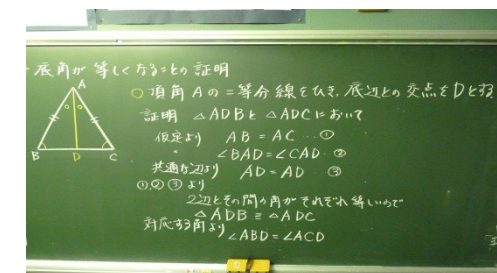 底角が等しくなることの証明
A
B D C
○ 頂角Aの二等分線をひき、底辺との交点をDとする
証明 △ADBと△ADCにおいて
仮定より AB=AC…①
〃 ∠BAD=∠CAD…②
共通な辺より AD=AD…③
①,②③より
2辺とその間の角がそれぞれ等しいので
△ADB≡△ADC
対応する角より
∠ABD=∠ACD